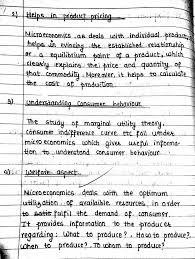 2) Helps in product pricing
Microeconomics as deals with individual product,
helps in evincing the established relationship
or a equilibrium point of a product, which
clearly explains the price and quantity of
that commodity. Moreover, it helps to calculate
the cost of production.
3) Understanding Consumer behaviour
The study of marginal utility theory,
consumer indifference curve etc fall under
micro economics which gives useful informa-
tion to understand consumer behaviour
4) Welfare aspect
Microeconomics deals with the optimum
utilization of available resources, in order
to fulfil the demand of consumer.
It provides information to the producers
regarding: What to produce? How to produce?
When to produce? To whom to produce?